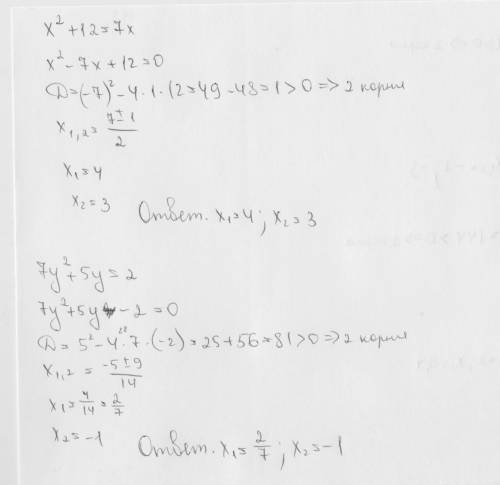 x² + 12 = 7x
x² - 7x + 12 = 0
D = (-7)² - 4 · 1 · 12 = 49 - 48 = 1 > 0 => 2 корня
x₁,₂ = (7 ± 1)/2
x₁ = 4
x₂ = 3
Ответ. x₁ = 4; x₂ = 3
7y² + 5y = 2
7y² + 5y - 2 = 0
D = 5² - 4 · 7 · (-2) = 25 + 56 = 81 > 0 => 2 корня
x₁,₂ = (-5 ± 9)/14
x₁ = 4/14 = 2/7
x₂ = -1
Ответ. x₁ = 2/7; x₂ = -1